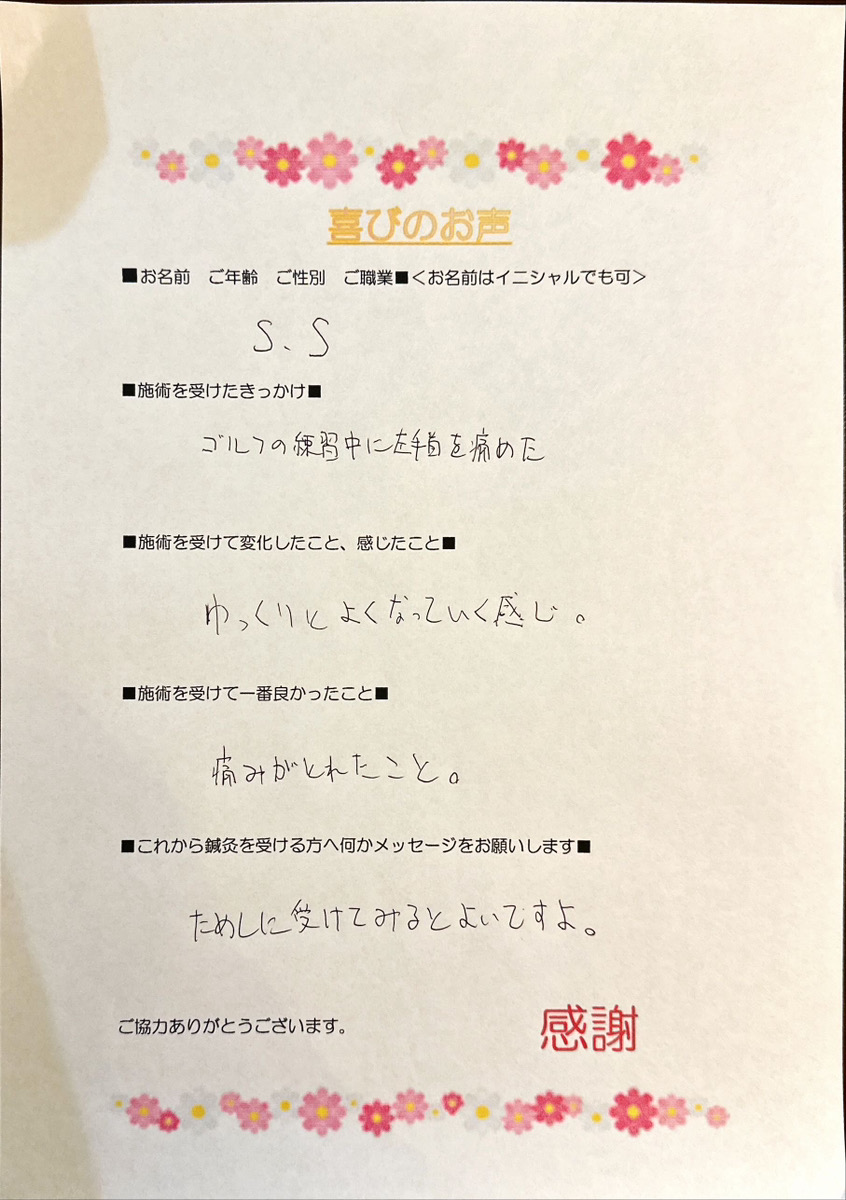 喜びのお声
■お名前　ご年齢　ご性別　ご職業■＜お名前はイニシャルでも可＞
S、S
■施術を受けたきっかけ■
ゴルフの練習中に左手首を痛めた
■施術を受けて変化したこと、感じたこと■
ゆっくりとよくなっていく感じ。
■施術を受けて一番良かったこと■
痛みがとれたこと。
■これから鍼灸を受ける方へ何かメッセージをお願いします■
ためしに受けてみるとよいですよ。
ご協力ありがとうございます。
感謝